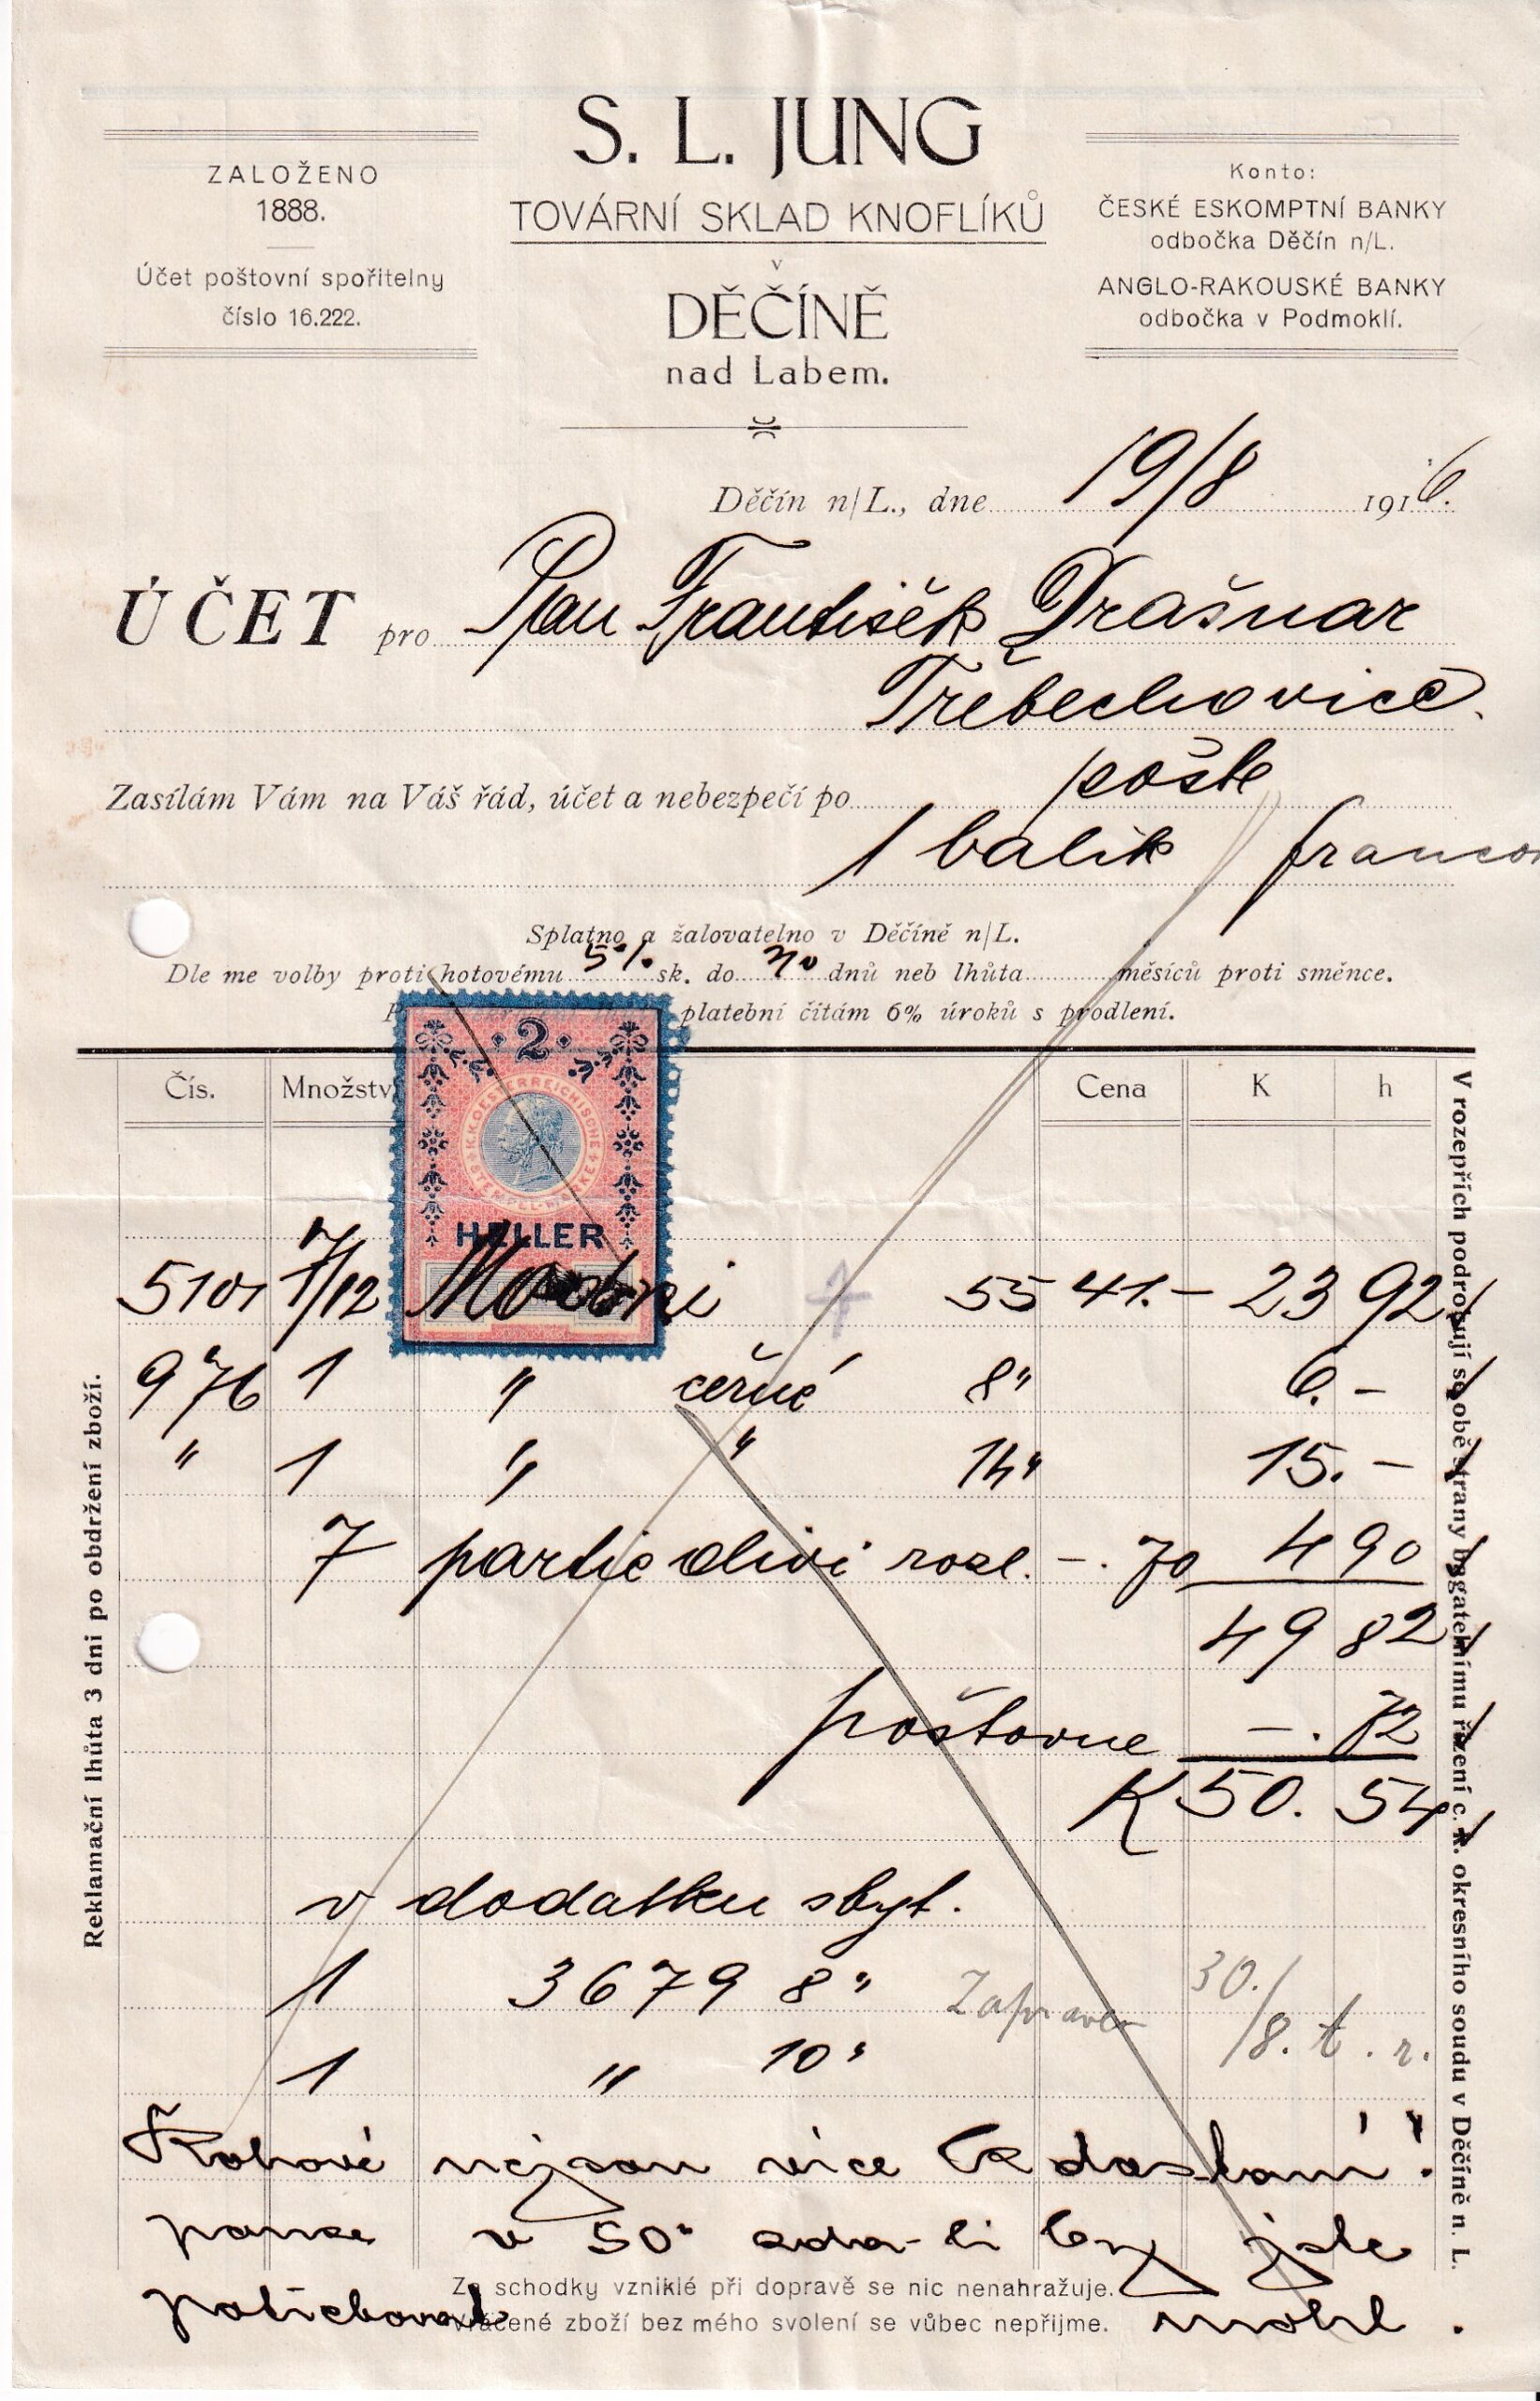 S. L. JUNG
TOVÁRNÍ SKLAD KNOFLÍKŮ
v
DĚČÍNĚ
nad Labem.
ZALOŽENO
1888.
Účet poštovní spořitelny
číslo 16.222.
Konto:
ČESKÉ ESKOMPTNÍ BANKY
odbočka Děčín n/L.
ANGLO-RAKOUSKÉ BANKY
odbočka v Podmoklí.
Děčín n/L., dne 19/8 1916.
ÚČET pro Pan František Drašnar
Třebechovice.
Zasílám Vám na Váš řád, účet a nebezpečí po poště
1 balik franco
Splatno a žalovatelno v Děčíně n/L.
Dle me volby proti hotovému 5% sk. do 30 dnů neb lhůta měsíců proti směnce.
platební čítám 6% úroků s prodlení.
Čís. Množstv Cena K h
2
K.K. OESTERREICHISCHE STEMPEL-MARKE
HELLER
5101 7/12 55 41.- 23 92
976 1 " černé 8" 6.-
" 1 " " 14" 15.-
7 partie olivi rozl. -.70 4 90
49 82
poštovne -.72
K 50.54
v dodatku zbyt.
1 3679 8"
Zapraveno 30./8. t. r.
1 " 10"
více k dostaní!
v 50" zda-li by jste
potřebovat mohl.
Za schodky vzniklé při dopravě se nic nenahražuje.
Vrácené zboží bez mého svolení se vůbec nepřijme.
Reklamační lhůta 3 dni po obdržení zboží.
V rozepřích podrobují se obě strany bagatelnímu řízení c. k. okresního soudu v Děčíně n. L.